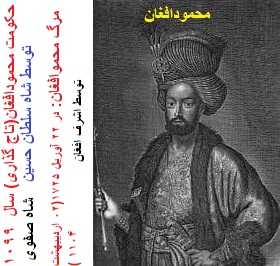 محمودافغان
حکومت محمودافغان(تاج گذاری) سال ۱۰۹۹
توسط شاه سلطان حسین
شاه صفوی
مرگ محموافغان: در ۲۲ آوریل ۱۷۲۵(۰۲ اردیبهشت
۱۱۰۴ )
توسط اشرف افغان